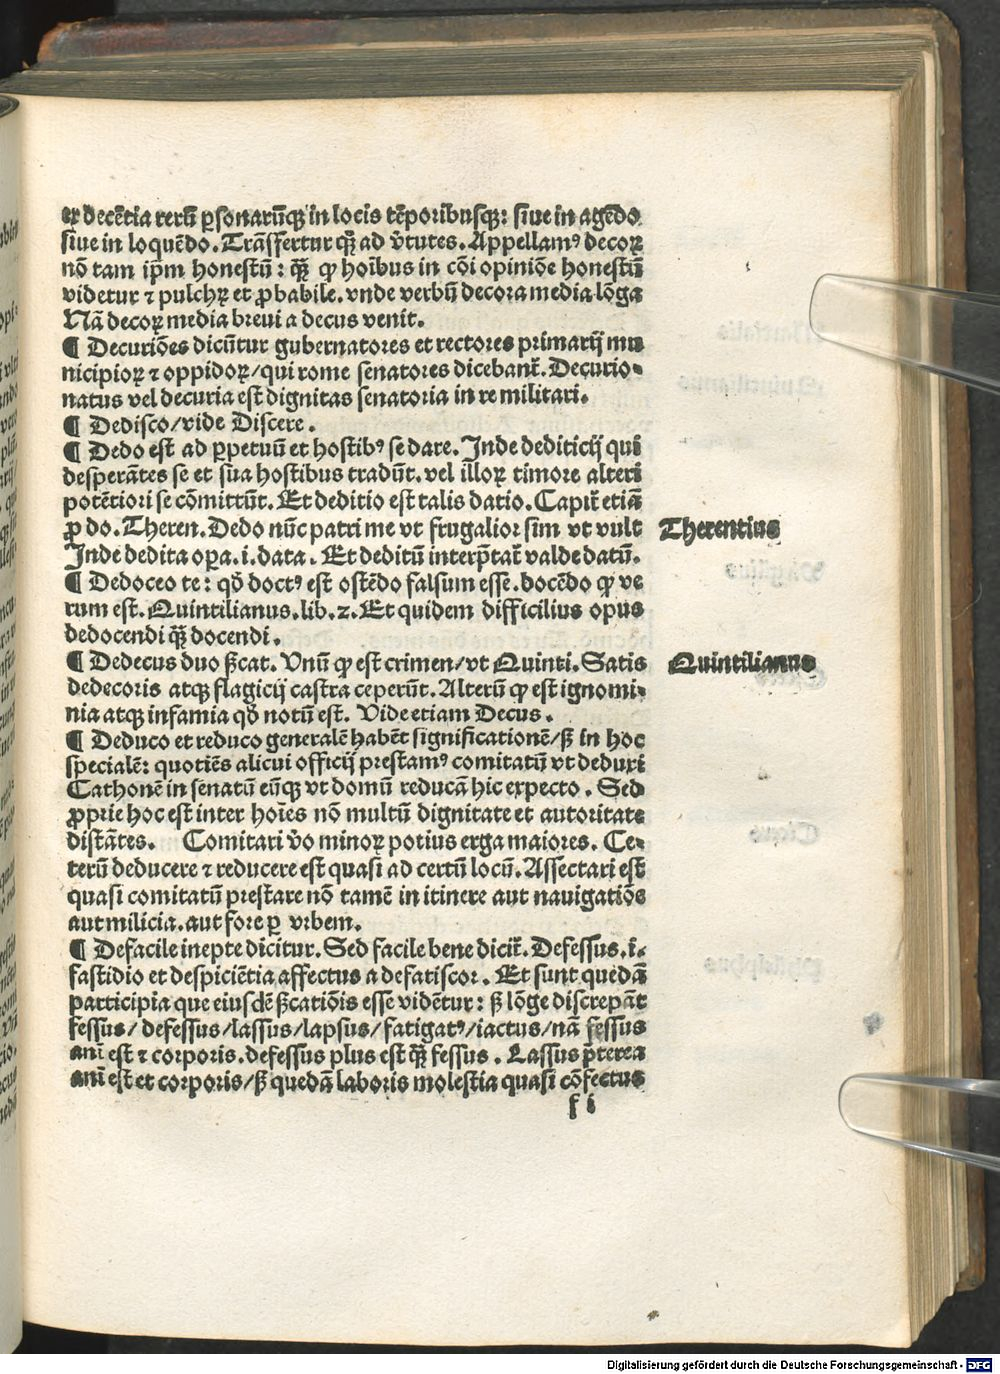 ex decētia rerū ꝑsonarūqꝫ in locis tēporibusqꝫ: siue in agēdo
siue in loquēdo. Trāsfertur qꝫ̄ ad v̄tutes. Appellamꝰ decoꝝ
nō tam ip̄m honestū: qꝫ̄ ꝙ hoībus in cōi opiniōe honestū
videtur ⁊ pulchꝝ et ꝓbabile. vnde verbū decora media lōga
Nā decoꝝ media breui a decus venit.
¶ Decuriōes dicūtur gubernatores et rectores primarij mu
nicipioꝝ ⁊ oppidoꝝ/qui rome senatores dicebant̄. Decurio⸗
natus vel decuria est dignitas senatoria in re militari.
¶ Dedisco/vide Discere.
¶ Dedo est ad ꝑpetuū et hostibꝰ se dare. Inde dediticij qui
desperātes se et sua hostibus tradūt. vel illoꝝ timore alteri
potētiori se cōmittūt. Et deditio est talis datio. Capit̄ etiā
ꝓ do. Theren. Dedo nūc patri me vt frugalior sim vt vult
Inde dedita oꝑa .i. data. Et deditū interp̄tat̄ valde datū.
¶ Dedoceo te: qd̄ doctꝰ est ostēdo falsum esse. docēdo ꝙ ve
rum est. Quintilianus. lib. 2. Et quidem difficilius opus
dedocendi qꝫ̄ docendi.
¶ Dedecus duo s̄cat. Vnū ꝙ est crimen/vt Quinti. Satis
dedecoris atqꝫ flagicij castra ceperūt. Alterū ꝙ est ignomi⸗
nia atqꝫ infamia qd̄ notū est. Vide etiam Decus.
¶ Deduco et reduco generalē habēt significationē/s̄ in hoc
specialē: quotiēs alicui officij prestamꝰ comitatū vt deduxi
Cathonē in senatū eūqꝫ vt domū reducā hic expecto. Sed
ꝓprie hoc est inter hoīes nō multū dignitate et autoritate
distātes. Comitari v̄o minoꝝ potius erga maiores. Ce⸗
terū deducere ⁊ reducere est quasi ad certū locū. Assectari est
quasi comitatū prestare nō tamē in itinere aut nauigatiōe
aut milicia. aut fore ꝑ vrbem.
¶ Defacile inepte dicitur. Sed facile bene dicit̄. Defessus .i.
fastidio et despiciētia affectus a defatiscor. Et sunt quedā
participia que eiusdē s̄catiōis esse vidētur: s̄ lōge discrepāt
fessus/defessus/lassus/lapsus/fatigatꝰ/iactus/nā fessus
anī est ⁊ corporis. defessus plus est qꝫ̄ fessus. Lassus p̄terea
anī est et corporis/s̄ quedā laboris molestia quasi cōfectus
f i
Therentius
Quintilianus
Digitalisierung gefördert durch die Deutsche Forschungsgemeinschaft - DFG